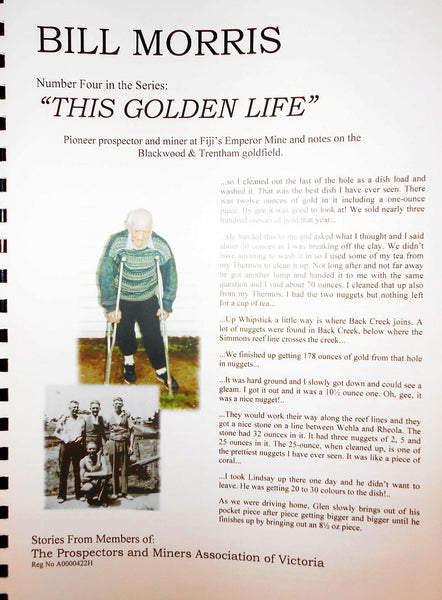 BILL MORRIS
Number Four in the Series:
"THIS GOLDEN LIFE"
Pioneer prospector and miner at Fiji's Emperor Mine and notes on the
Blackwood & Trentham goldfield.
...so I cleaned out the last of the hole as a dish load and
washed it. That was the best dish I have ever seen. There
was twelve ounces of gold in it including a one-ounce
piece. By gee it was good to look at! We sold nearly three
hundred ounces of gold that year...
...He handed this to me and asked what I thought and I said
about 50 ounces as I was breaking off the clay. We didn't
have anything to wash it in so I used some of my tea from
my Thermos to clean it up. Not long after and not far away
he got another lump and handed it to me with the same
question and I said about 70 ounces. I cleaned that up also
from my Thermos. I had the two nuggets but nothing left
for a cup of tea...
...Up Whipstick a little way is where Back Creek joins. A
lot of nuggets were found in Back Creek, below where the
Simmons reef line crosses the creek...
...We finished up getting 178 ounces of gold from that hole
in nuggets...
...It was hard ground and I slowly got down and could see a
gleam. I got it out and it was a 10½ ounce one. Oh, gee, it
was a nice nugget!..
...They would work their way along the reef lines and they
got a nice stone on a line between Wehla and Rheola. The
stone had 32 ounces in it. It had three nuggets of 2, 5 and
25 ounces in it. The 25-ounce, when cleaned up, is one of
the prettiest nuggets I have ever seen. It was like a piece of
coral...
...I took Lindsay up there one day and he didn't want to
leave. He was getting 20 to 30 colours to the dish!..
As we were driving home, Glen slowly brings out of his
pocket piece after piece getting bigger and bigger until he
finishes up by bringing out an 8½ oz piece.
Stories From Members of:
The Prospectors and Miners Association of Victoria
Reg No A0000422H